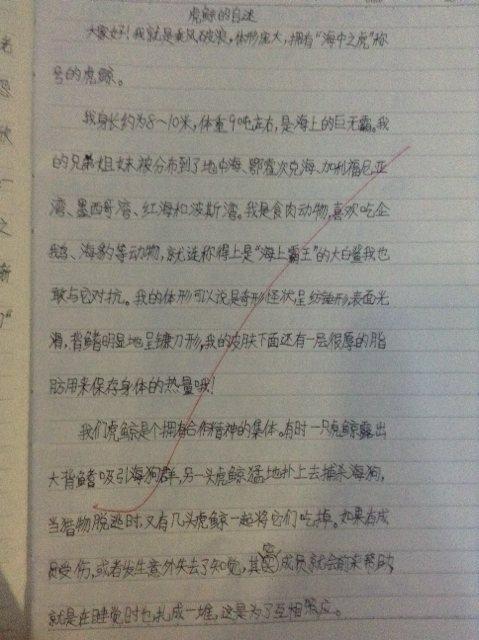 虎鲸的自述
大家好！我就是乘风破浪，体形庞大，拥有“海中之虎”称
号的虎鲸。
我身长约为8～10米，体重9吨左右，是海上的巨无霸。我
的兄弟姐妹被分布到了地中海、鄂霍次克海、加利福尼亚
湾、墨西哥湾、红海和波斯湾。我是食肉动物，喜欢吃企
鹅、海豹等动物，就连称得上是“海上霸王”的大白鲨我也
敢与它对抗。我的体形可以说是奇形怪状呈纺锤形，表面光
滑，背鳍明显地呈镰刀形，我的皮肤下面还有一层很厚的脂
肪用来保存身体的热量哦！
我们虎鲸是个拥有合作精神的集体。有时一只虎鲸露出
大背鳍吸引海狗群，另一头虎鲸猛地扑上去捕杀海狗，
当猎物脱逃时，又有几头虎鲸一起将它们吃掉。如果有成
员受伤，或者发生意外失去了知觉，其它成员就会前来帮助，
就是在睡觉时也扎成一堆，这是为了互相照应。